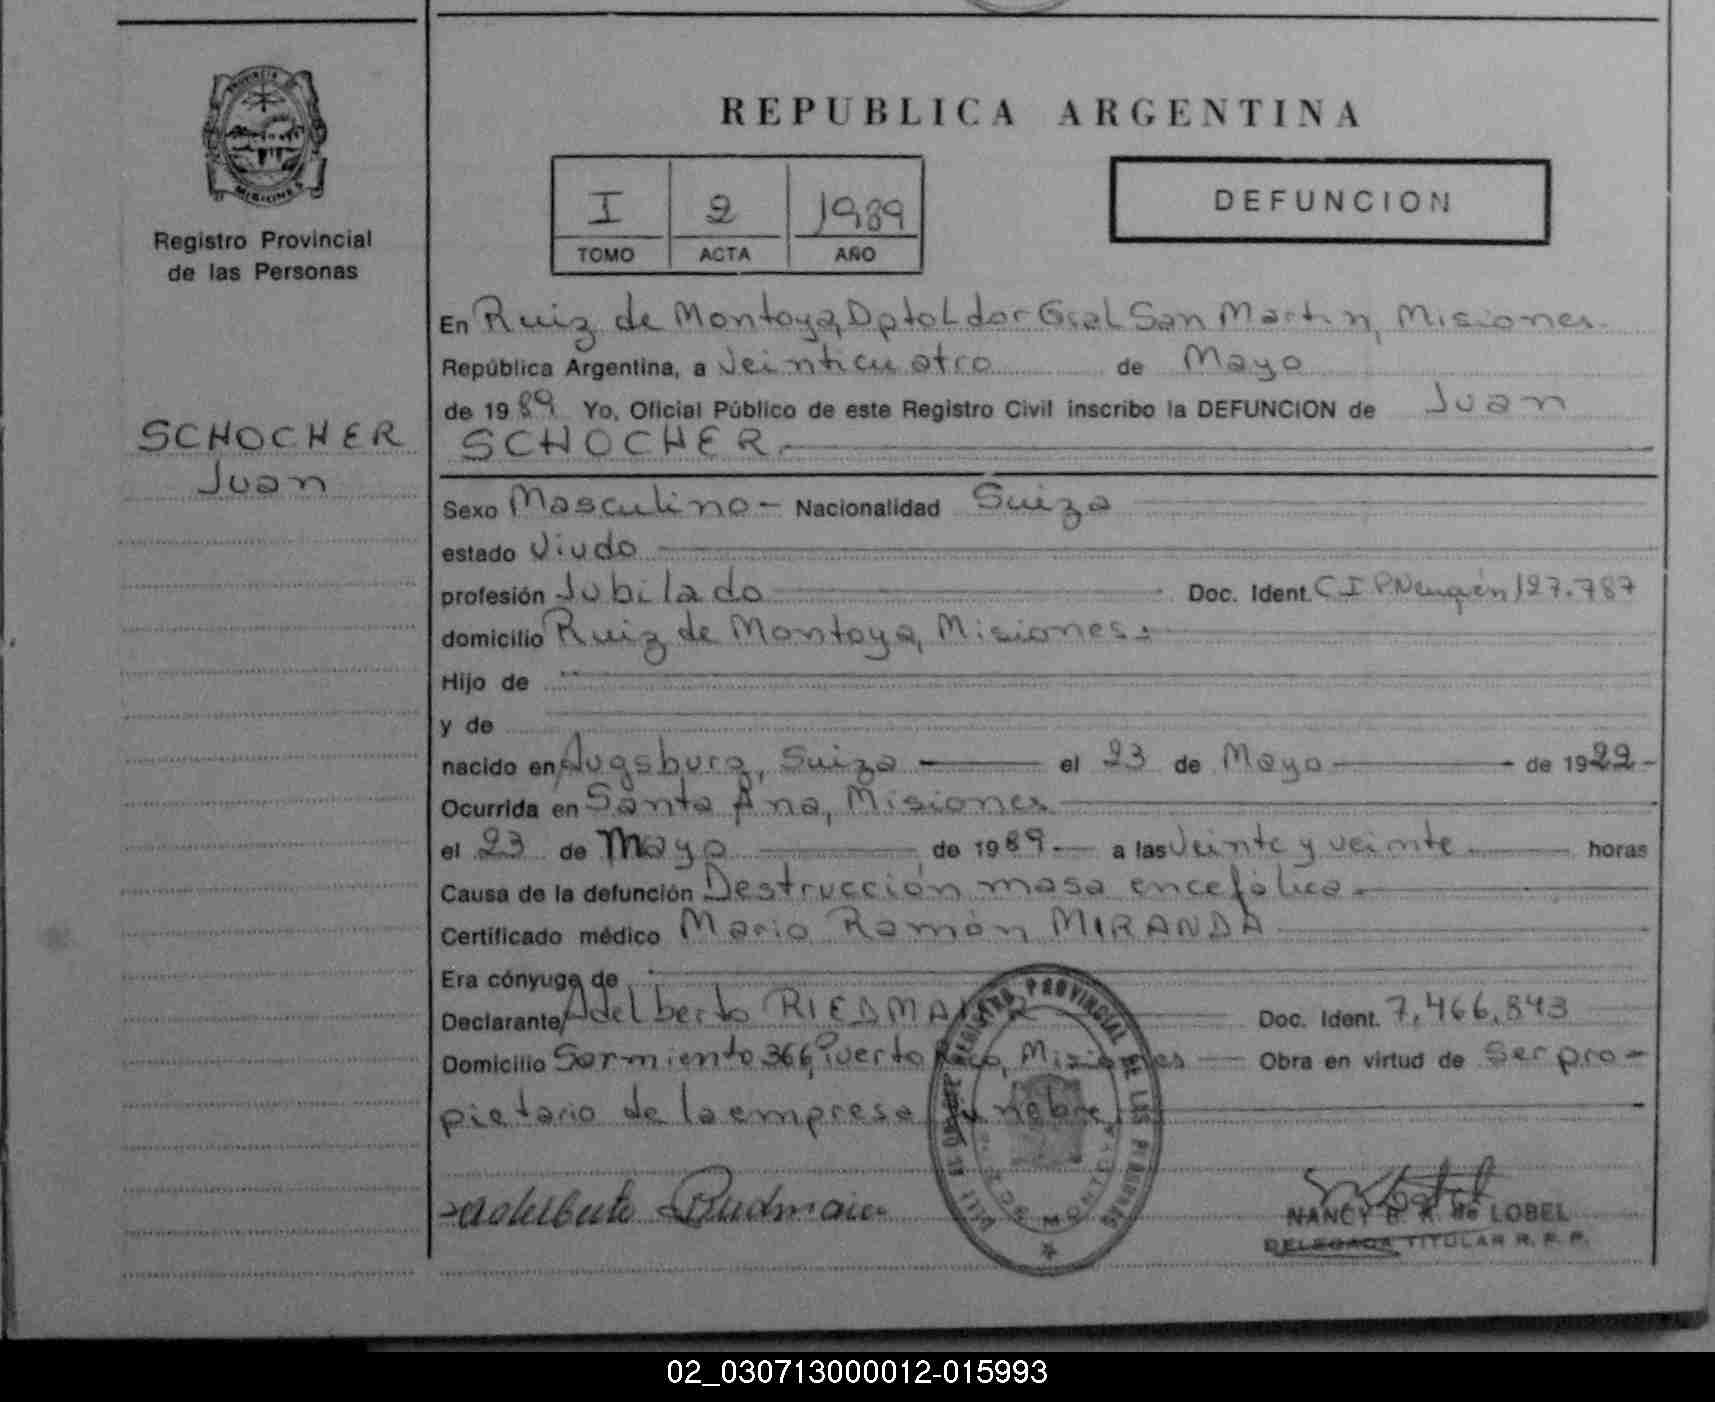 PROVINCIA
MISIONES
Registro Provincial
de las Personas
SCHOCHER
Juan
REPUBLICA ARGENTINA
I 2 1989
TOMO ACTA AÑO
DEFUNCION
En Ruiz de Montoya, Dpto Ldor Gral San Martin, Misiones.
República Argentina, a veinticuatro de Mayo
de 1989 Yo, Oficial Público de este Registro Civil inscribo la DEFUNCION de Juan
SCHOCHER.
Sexo Masculino - Nacionalidad Suiza
estado Viudo
profesión Jubilado Doc. Ident. C I P Neuquén 127.787
domicilio Ruiz de Montoya, Misiones.
Hijo de
y de
nacido en Augsburg, Suiza el 23 de Mayo de 1922-
Ocurrida en Santa Ana, Misiones
el 23 de Mayo de 1989 a las veinte y veinte horas
Causa de la defunción Destrucción masa encefálica.
Certificado médico Mario Ramón MIRANDA
Era cónyuge de
Declarante Adelberto RIEDMAIER Doc. Ident. 7,466,843
Domicilio Sarmiento 366, Puerto Rico, Misiones Obra en virtud de Ser pro-
pietario de la empresa fúnebre
REGISTRO PROVINCIAL DE LAS PERSONAS
MONTOYA
Adelberto Riedmaier
NANCY B. R. de LOBEL
DELEGADA TITULAR R. P. P.
02_030713000012-015993